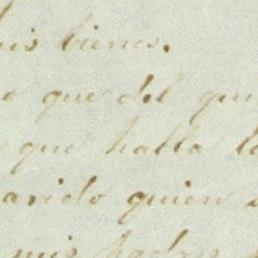 bienes.
o que del qu
que halla la
arido quien
mis